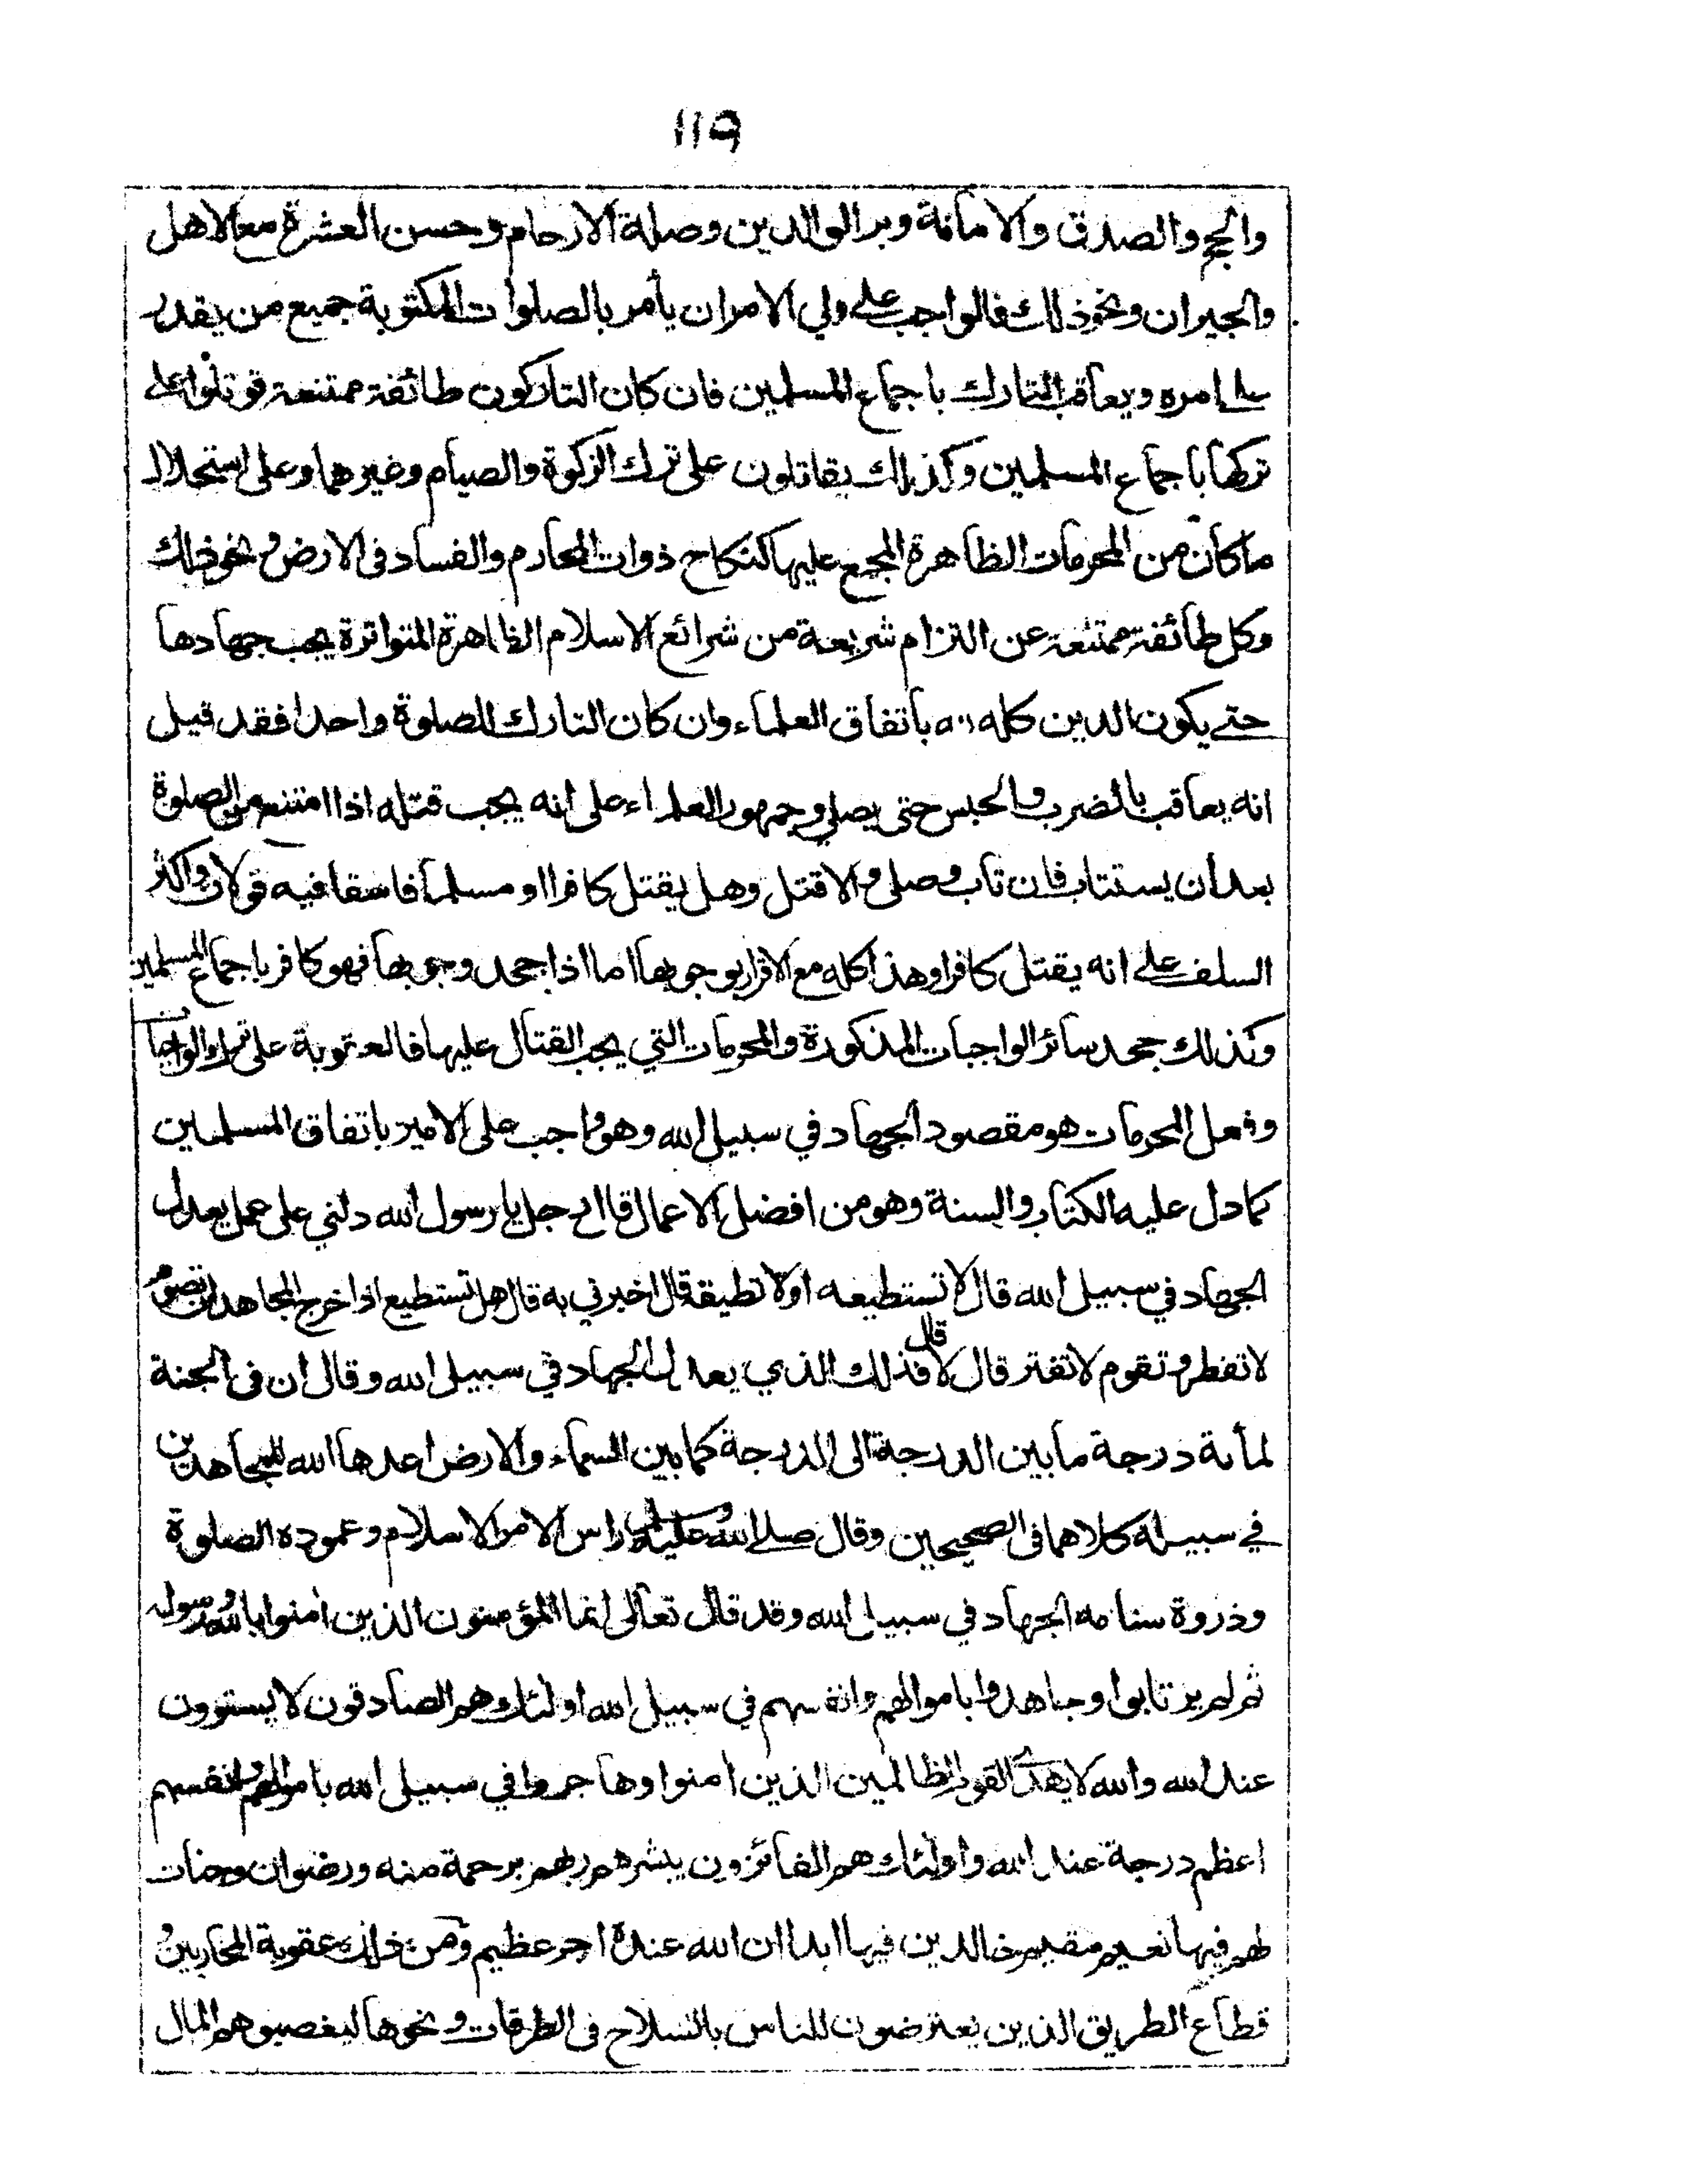 119
والحج والصدق والامانة وبر الوالدين وصلة الارحام وحسن العشرة مع الاهل
والجيران ونحو ذلك فالواجب على ولي الامر ان يأمر بالصلوات المكتوبة جميع من يقدر
على امره ويعاقب التارك باجماع المسلمين فان كان التاركون طائفة ممتنعة قوتلوا على
تركها باجماع المسلمين وكذلك يقاتلون على ترك الزكوة والصيام وغيرهما وعلى استحلال
ما كان من المحرمات الظاهرة المجمع عليها كنكاح ذوات المحارم والفساد فى الارض ونحو ذلك
وكل طائفة ممتنعة عن التزام شريعة من شرائع الاسلام الظاهرة المتواترة يجب جهادها
حتى يكون الدين كله لله باتفاق العلماء وان كان التارك للصلوة واحدا فقد قيل
انه يعاقب بالضرب والحبس حتى يصلي وجمهور العلماء على انه يجب قتله اذا امتنع من الصلوة
بعد ان يستتاب فان تاب وصلى والا قتل وهل يقتل كافرا او مسلما فاسقا فيه قولان واكثر
السلف على انه يقتل كافرا وهذا كله مع الاقرار بوجوبها اما اذا جحد وجوبها فهو كافر باجماع المسلمين
وكذلك جحد سائر الواجبات المذكورة والمحرمات التي يجب القتال عليها فالعقوبة على ترك الواجبات
وفعل المحرمات هو مقصود الجهاد في سبيل الله وهو واجب على الامير باتفاق المسلمين
كما دل عليه الكتاب والسنة وهو من افضل الاعمال قال رجل يا رسول الله دلني على عمل يعدل
الجهاد في سبيل الله قال لا تستطيعه او لا تطيقه قال اخبرني به قال هل تستطيع اذا خرج المجاهد ان تصوم
لا تفطر وتقوم لا تفتر قال لا قال فذلك الذي يعدل الجهاد في سبيل الله وقال ان فى الجنة
لمأئة درجة ما بين الدرجة الى الدرجة كما بين السماء والارض اعدها الله للمجاهدين
في سبيله كلاهما فى الصحيحين وقال صلى الله عليه وسلم راس الامر الاسلام وعموده الصلوة
وذروة سنامه الجهاد في سبيل الله وقد قال تعالى انما المؤمنون الذين امنوا بالله ورسوله
ثم لم يرتابوا وجاهدوا باموالهم وانفسهم في سبيل الله اولئك هم الصادقون لا يستوون
عند الله والله لا يهدى القوم الظالمين الذين امنوا وهاجروا في سبيل الله باموالهم وانفسهم
اعظم درجة عند الله واولئك هم الفائزون يبشرهم ربهم برحمة منه ورضوان وجنات
لهم فيها نعيم مقيم خالدين فيها ابدا ان الله عنده اجر عظيم ومن ذلك عقوبة المحاربين و
قطاع الطريق الذين يعترضون للناس بالسلاح فى الطرقات ونحوها ليغصبوهم المال